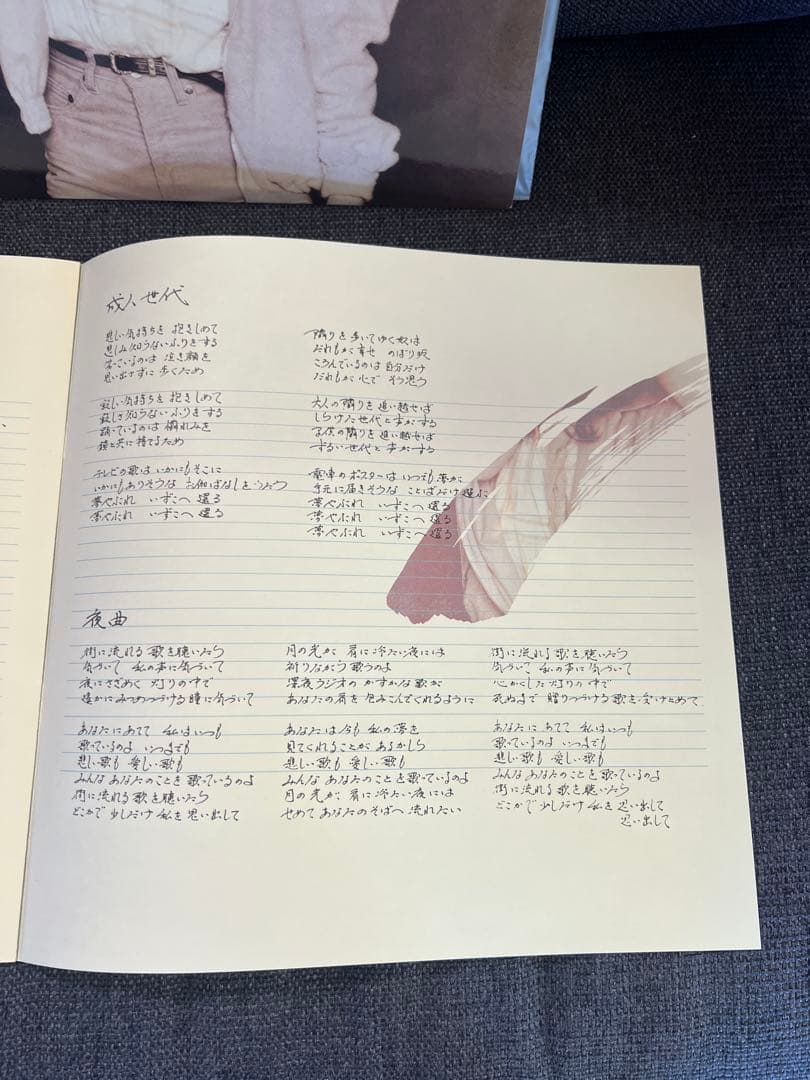 成人世代
悲しい気持ちを 抱きしめて
悲しみ知らないふりをする
笑っているのは 泣き顔を
思い出さずに 歩くため
寂しい気持ちを 抱きしめて
寂しさ知らないふりをする
踊っているのは 憐れみを
鏡と共に 捨てるため
テレビの歌は いかにもそこに
いかにもありそうな お伽ばなしをうたう
夢やぶれ いずこへ還る
夢やぶれ いずこへ還る
隣りを歩いてゆく奴は
だれもが幸せ のぼり坂
ころんでいるのは 自分だけ
だれもが心で そう思う
大人の隣りを 追い越せば
しらけた世代と 声がする
子供の隣りを 追い越せば
ずるい世代と 声がする
電車のポスターは いつでも夢が
手元に届きそうな ことばだけ選ぶ
夢やぶれ いずこへ還る
夢やぶれ いずこへ還る
夢やぶれ いずこへ還る
夜曲
街に流れる 歌を聴いたら
気づいて 私の声に気づいて
夜にさざめく 灯りの中で
遥かにみつめつづける瞳に気づいて
あなたにあてて 私はいつも
歌っているのよ いつまでも
悲しい歌も 愛しい歌も
みんなあなたのことを歌っているのよ
街に流れる歌を聴いたら
どこかで少しだけ 私を思い出して
月の光が 肩に冷たい夜には
祈りながら歌うのよ
深夜ラジオの かすかな歌が
あなたの肩を 包みこんでくれるように
あなたは今も 私の夢を
見てくれることが あるかしら
悲しい歌も 愛しい歌も
みんなあなたのことを歌っているのよ
月の光が 肩に冷たい夜には
せめてあなたのそばへ 流れたい
街に流れる歌を聴いたら
気づいて 私の声に気づいて
心かくした灯りの中で
死ぬまで 贈りつづける歌を受けとめて
あなたにあてて 私はいつも
歌っているのよ いつまでも
悲しい歌も 愛しい歌も
みんなあなたのことを歌っているのよ
街に流れる歌を聴いたら
どこかで少しだけ 私を思い出して
思い出して